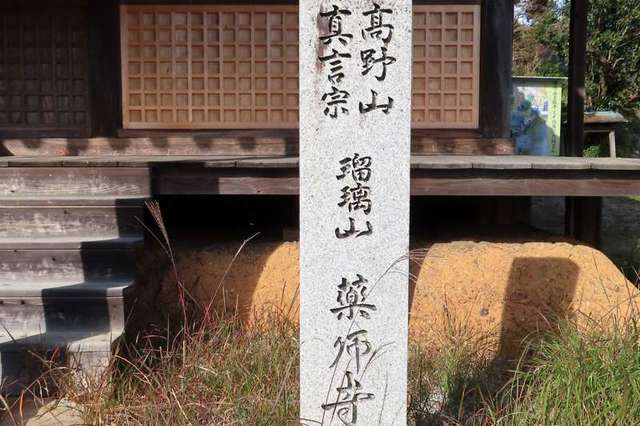 高野山
真言宗
瑠璃山
薬師寺